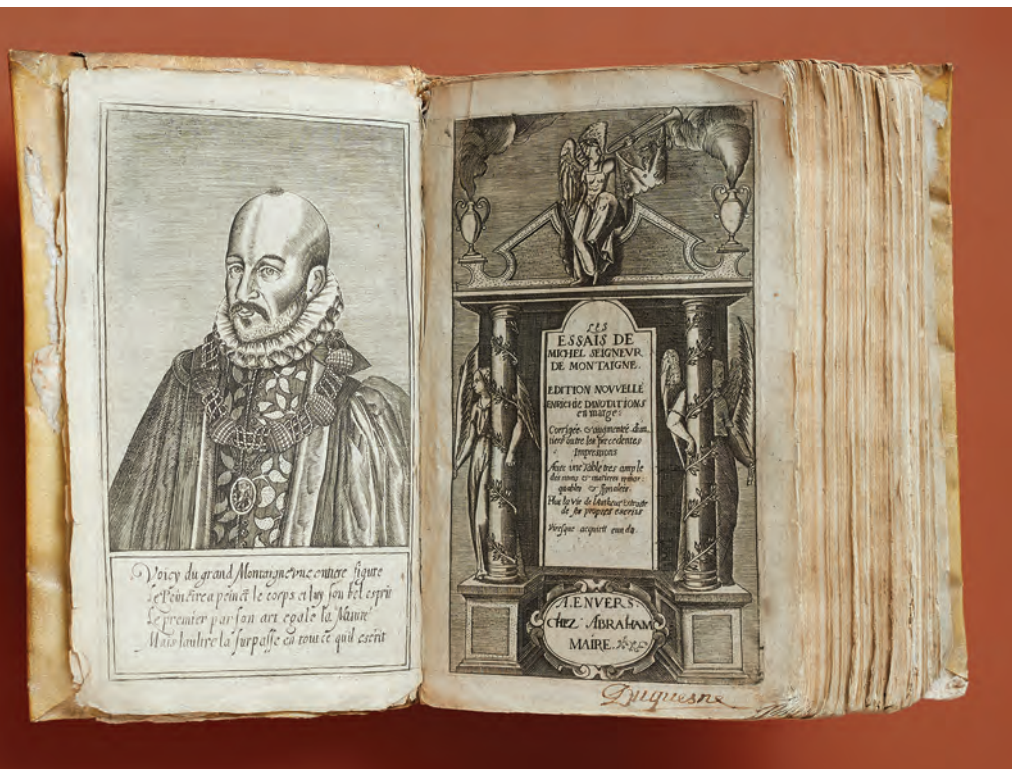 Voicy du grand Montaigne vne entiere figure
Le Peintre a peinct le corps et luy son bel esprit
Le premier par son art egale la Nature
Mais lautre la surpasse en tout ce quil escrit
LES
ESSAIS DE
MICHEL SEIGNEVR
DE MONTAIGNE.
EDITION NOVVELLE
ENRICHIE DANOTATIONS
en marge:
Corrigée & augmentée d'un
tiers outre les precedentes
Impressions
Avec une Table tres ample
des noms & matieres
& signalees
Plus la Vie de l'Autheur Extraite
de ses propres escrits
Viresque acquirit eundo.
A. ENVERS.
CHEZ ABRAHAM
MAIRE.
Duquesne